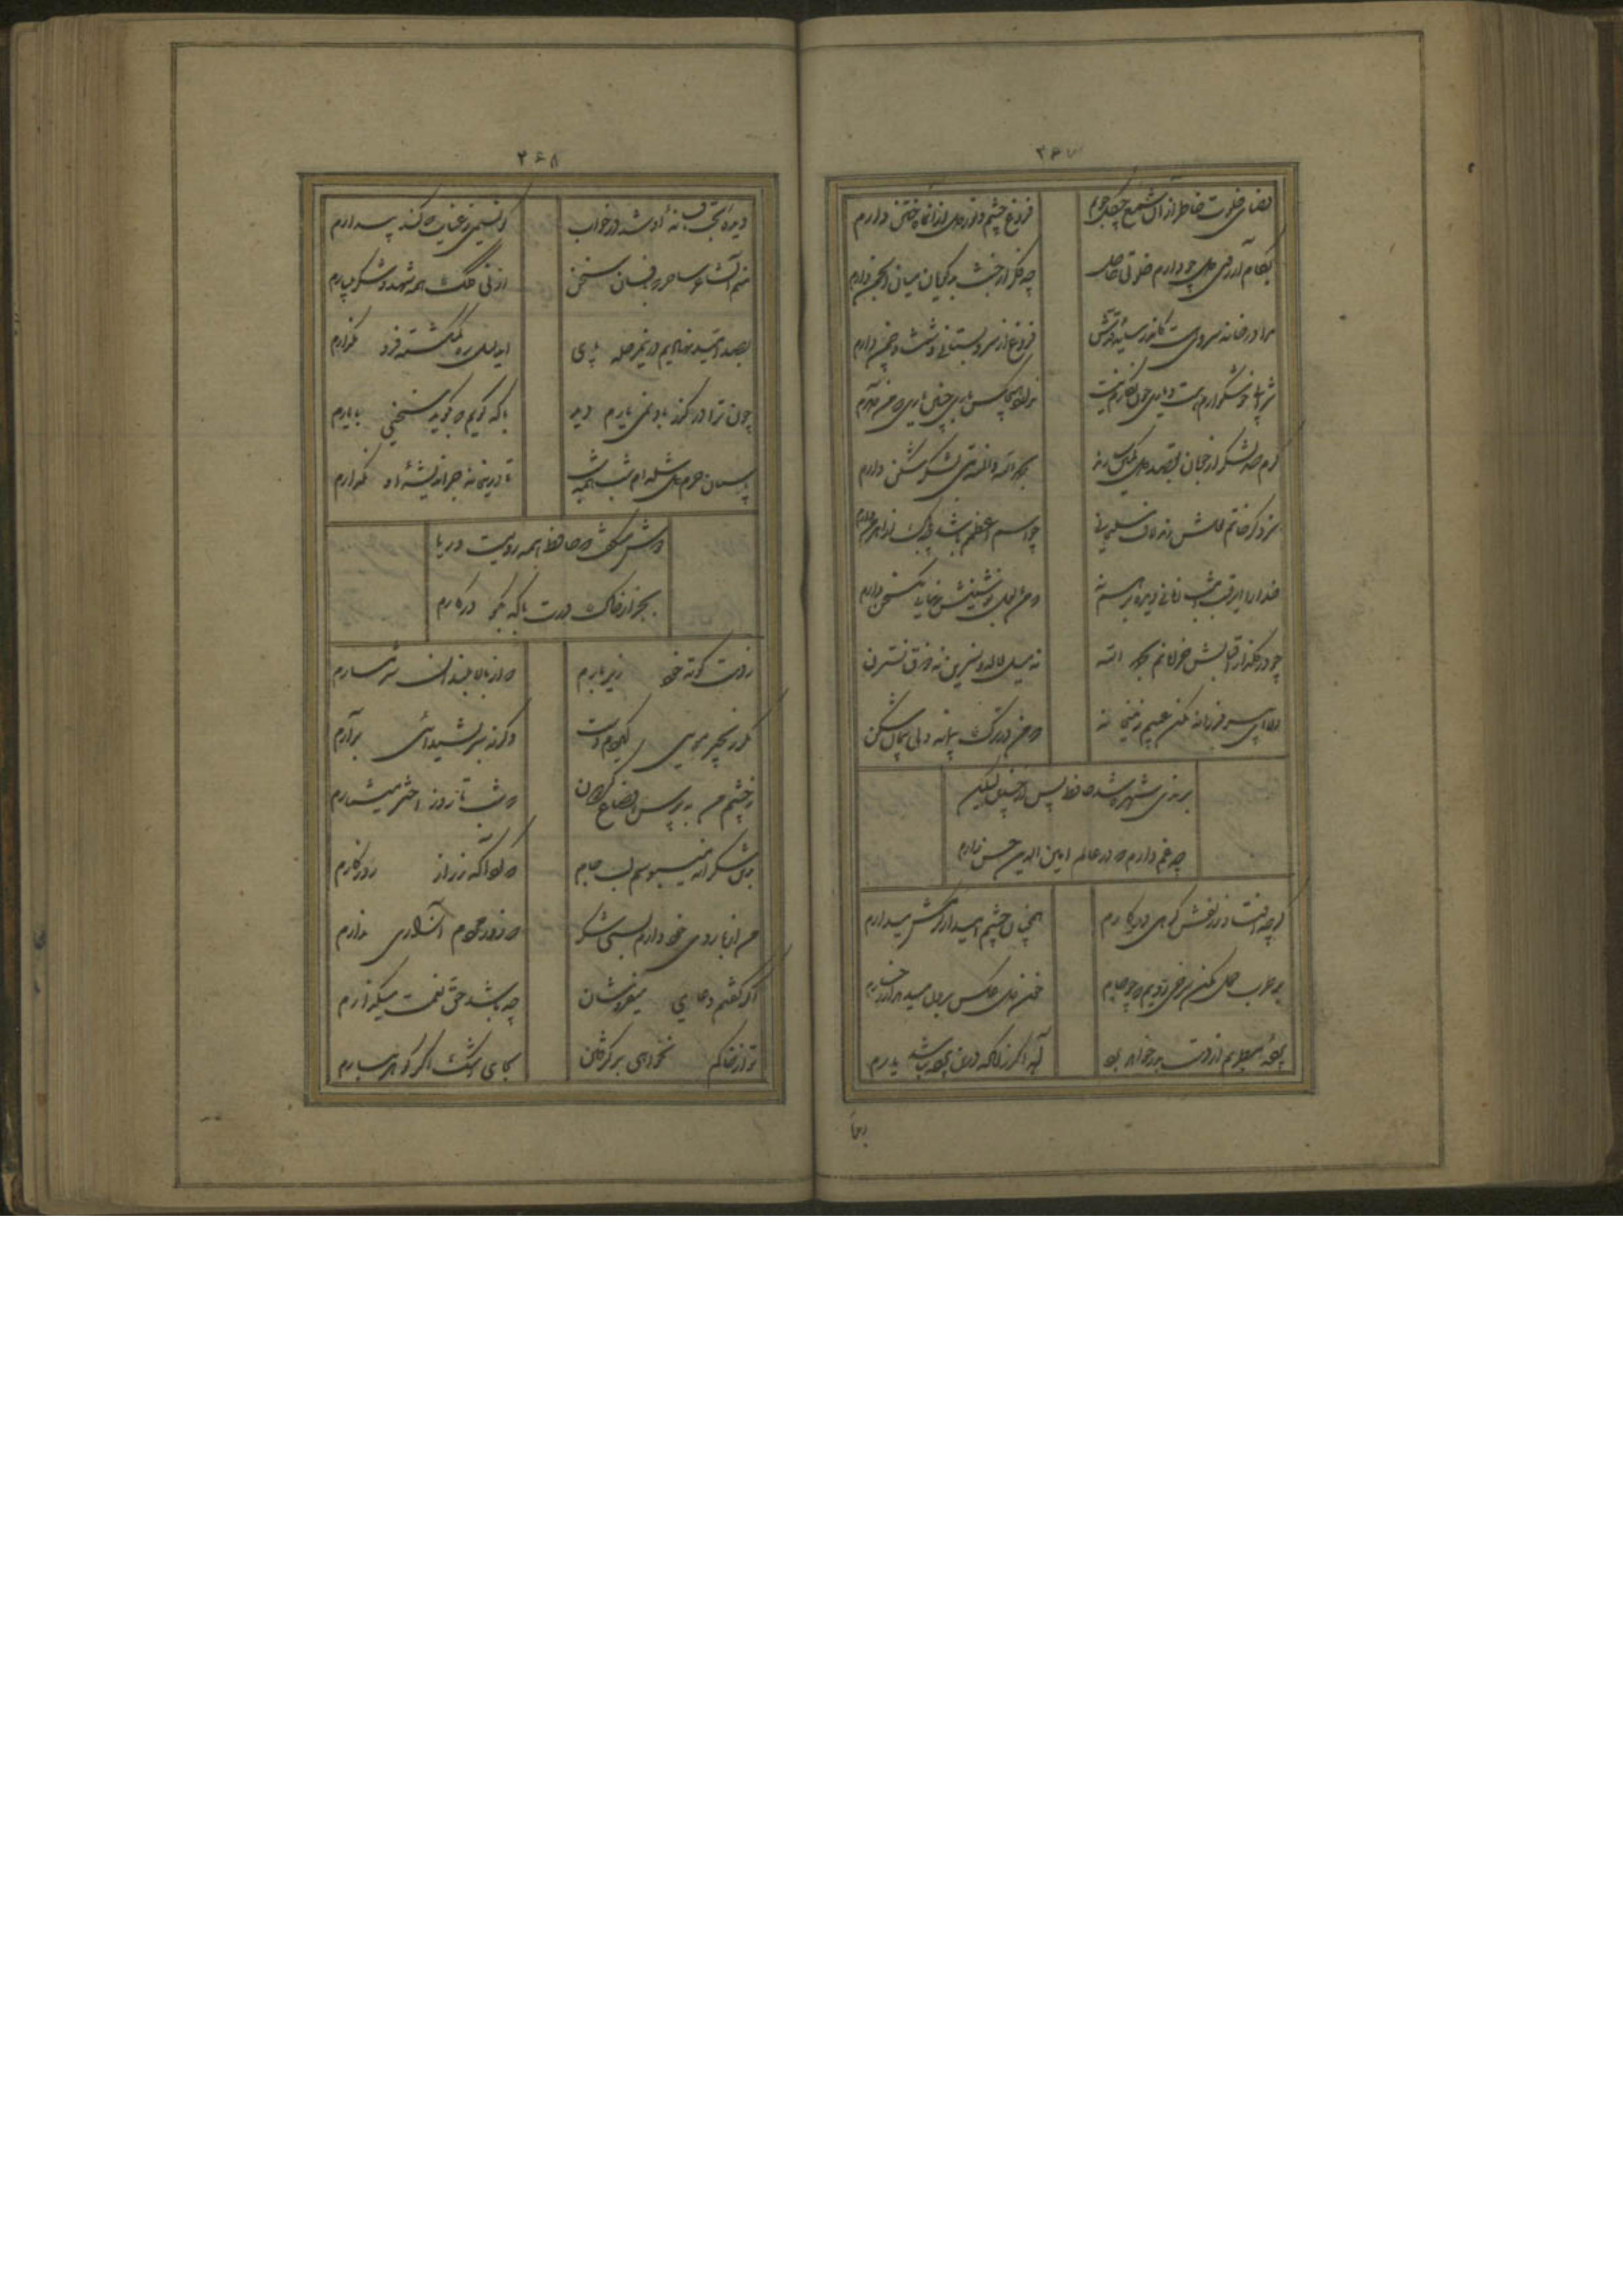 ۲۶۷
صفای خلوت خاطر از آن شمع چگل جویم
فروغ چشم و نور دل از آن ماه ختن دارم
بکام و آرزوی دل چو دارم خلوتی حاصل
چه فکر از خبث بدگویان میان انجمن دارم
مرا در خانه سروی هست کاندر سایهٔ قدش
فراغ از سرو بستانی و شمشاد چمن دارم
شرابی خوشگوارم هست و یاری چون نگارم نیست
ندارد هیچکس یاری چنین یاری که من دارم
گرم صد لشکر از خوبان بقصد دل کمین سازند
بحمد الله والمنه بتی لشکر شکن دارم
سزد کز خاتم لعلش زنم لاف سلیمانی
چو اسم اعظمم باشد چه باک از اهرمن دارم
خدا را ای رقیب امشب زمانی دیده بر هم نه
که من با لعل نوشینش نهانی یک سخن دارم
چو در گلزار اقبالش خرامانم بحمد الله
نه میل لاله و نسرین نه برگ نسترن
الا ای پیر فرزانه مکن عیبم ز میخانه
که من در ترک پیمانه دلی پیمان شکن
برندی شهره شد حافظ پس از چندین لیکن
چه غم دارم که در عالم امین الدین حسن دارم
گرچه افتاد ز زلفش گرهی در کارم
همچنان چشم امید از کرمش میدارم
بطرب حمل مکن سرخی رویم که چو جام
خون دل عکس برون میدهد از رخسارم
پردهٔ مطربم از دست برون خواهد برد
آه اگر زانکه درین پرده نباشد بارم
۲۶۸
دیدهٔ بخت بافسانهٔ او شد در خواب
کو نسیمی ز عنایت که کند بیدارم
منم آن شاعر ساحر که بافسون سخن
از نی کلک همه شهد و شکر میبارم
بصد امید نهادیم درین مرحله پای
ای دلیل ره گمگشته فرو مگذارم
چون ترا در گذر باد نمی یارم دید
با که گویم که بگوید سخنی با یارم
پاسبان حرم دل شده ام شب همه شب
تا درین خانه جز اندیشهٔ او نگذارم
دوش میگفت که حافظ همه رویست و ریا
بجز از خاک درت با که بگو در کارم
ز دست کوته خود زیر بارم
که از بالا بلندان شرمسارم
مگر زنجیر مویی گیردم دست
وگرنه سر بشیدائی برآرم
ز چشم من بپرس اوضاع گردون
که شب تا روز اختر میشمارم
بدین شکرانه میبوسم لب جام
که کرد آگه ز راز روزگارم
من از بازوی خود دارم بسی شکر
که زور مردم آزاری ندارم
اگر گفتم دعای میفروشان
چه باشد حق نعمت میگذارم
تو از خاکم نخواهی برگرفتن
بجای اشک اگر گوهر ببارم